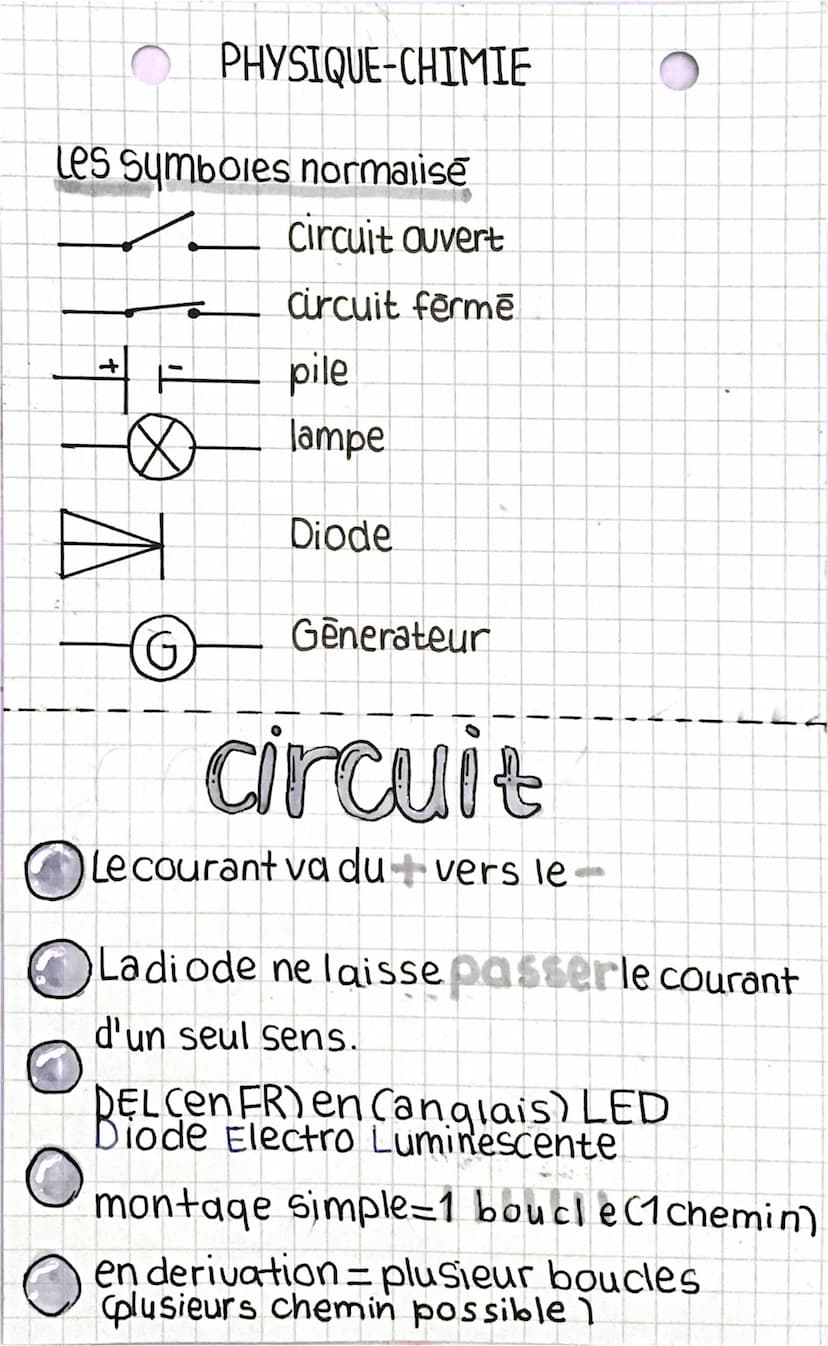 PHYSIQUE-CHIMIE
Les symboles normalisē
circuit ouvert
circuit fērmē
+ - pile
lampe
Diode
G Gēnerateur
circuit
Le courant va du + vers le -
La diode ne laisse passer le courant
d'un seul sens.
DEL (en FR) en (anglais) LED
Diode Electro Luminescente
montage simple=1 boucle (1 chemin)
en derivation = plusieur boucles
(plusieurs chemin possible)